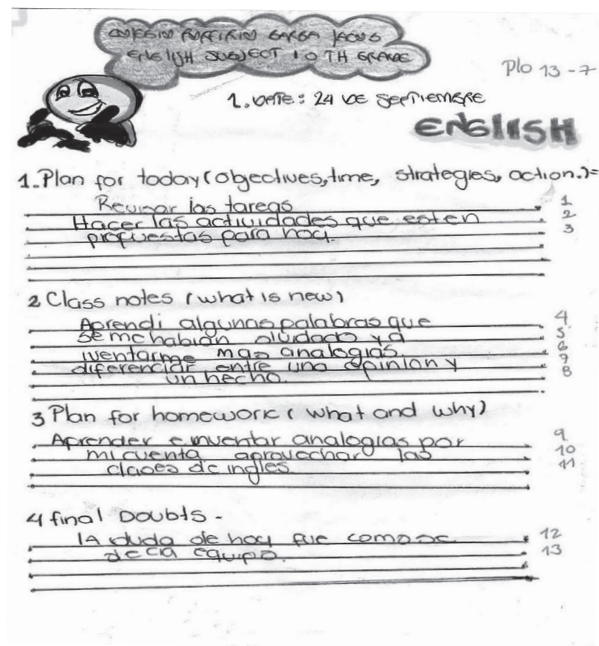 COLEGIO PORFIRIO BARBA JACOB
ENGLISH SUBJECT 10 TH GRADE
Plo 13-7
1. DATE: 24 DE Septiembre
ENGLISH
1. Plan for today (objectives, time, strategies, action.)=
Revisar las tareas 1
Hacer las actividades que esten 2
propuestas para hoy. 3
2 Class notes (what is new)
Aprendi algunas palabras que 4
se me habian olvidado y a 5
inventarme mas analogias. 6
diferenciar entre una opinion y 7
un hecho. 8
3 Plan for homework (what and why)
Aprender e inventar analogias por 9
mi cuenta aprovechar las 10
clases de ingles 11
4 final Doubts -
la duda de hoy fue como se 12
decia equipo. 13